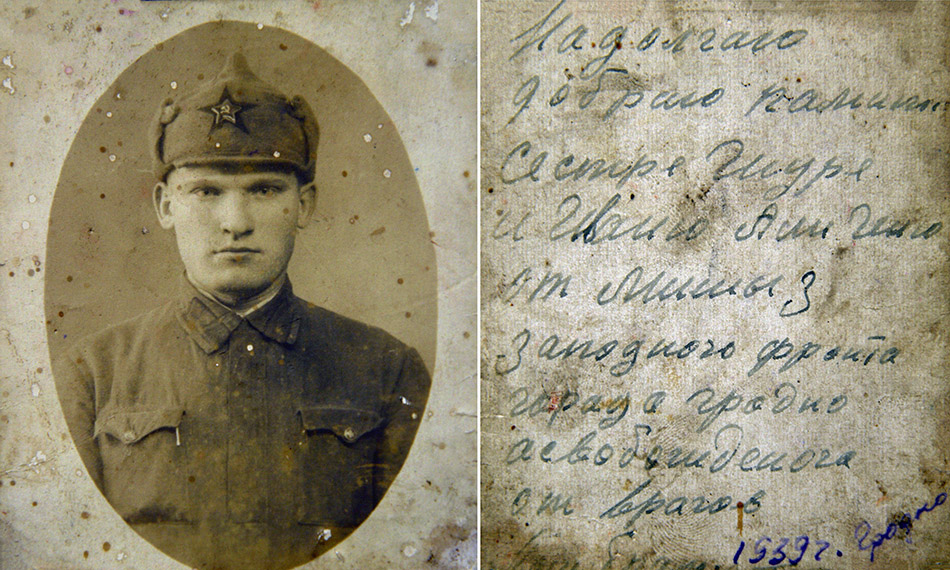 На долгаю
добраю памить
Сестре Шуре
и Ивану
от Миши з
западного фронта
города гродно
асвобожденога
от врагов
1939 г. Гродно